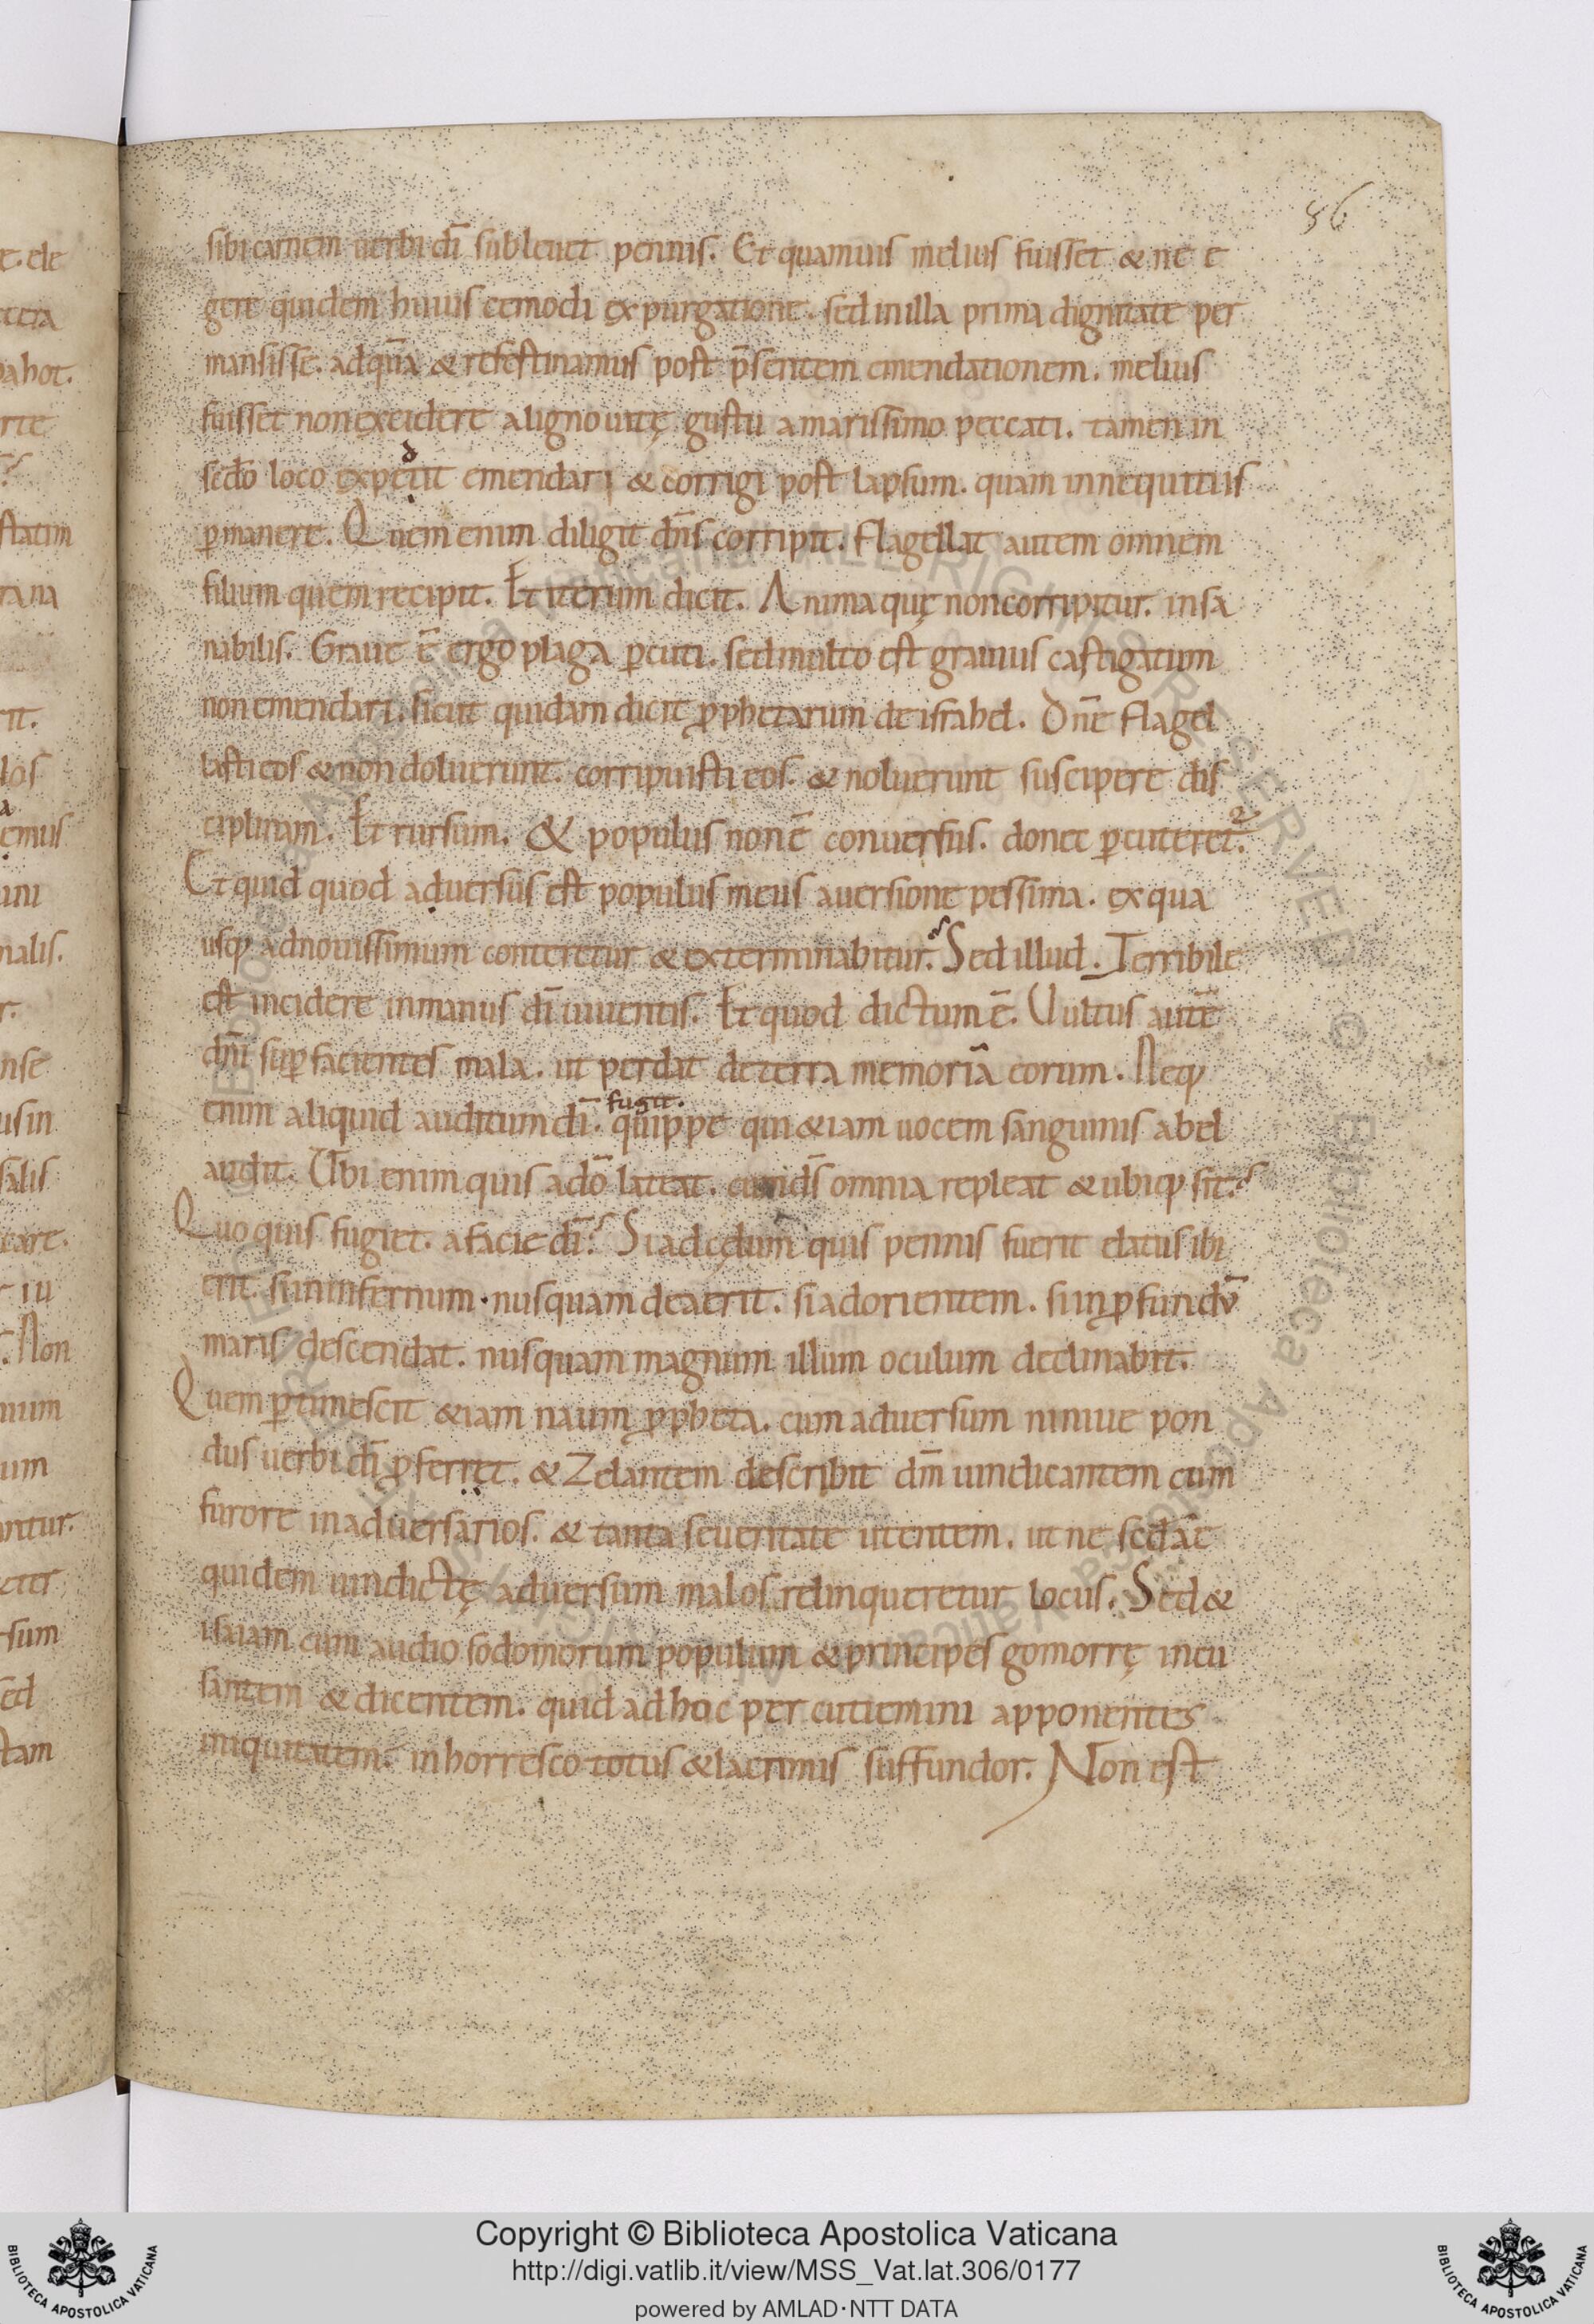 86
sibi carnem uerbi dī subleuet pennis. Et quamuis melius fuisset & ne e
gere quidem huius cemodi expurgatione. sed in illa prima dignitate per
mansisse. ad quā & refestinamus post p̄sentem emendationem. melius
fuisset non excidere a ligno uitę gustu amarissimo peccati. tamen in
scdō loco expetiit emendari & corrigi post lapsum. quam in nequitiis
d
ꝑmanere. Quem enim diligit dn̄s corripit. Flagellat autem omnem
filium quem recipit. Et iterum dicit. Anima quę non corripitur. insa
nabilis. Graue ē ergo plaga ꝑcuti. sed multo est grauius castigatum
non emendari. sicut quidam dicit ꝓphetarum de israhel. Dn̄e flagel
lasti eos & non doluerunt. corripuisti eos. & noluerunt suscipere dis
ciplinam. Et rursum. & populus non ē conuersus. donec ꝑcuteret.
Et quid quod aduersus est populus meus auersione pessima. ex qua
usq; ad nouissimum conteretur & exterminabitur. Sed illud. Terribile
est incidere in manus dī uiuentis. Et quod dictum ē. Uultus autē
dn̄i sup̱ facientes mala. ut perdat de terra memoriā eorum. Neq;
enim aliquid auditum dī. quippe qui &iam uocem sanguinis abel
fugit.
audit. Ubi enim quis a dō lateat. cum ds̄ omnia repleat & ubiq; sit?
Quo quis fugiet. a facie dī? Si ad cęlum quis pennis fuerit elatus ibi
erit. si in infernum. nusquam deaerit. si ad orientem. si in ꝓfundū
maris descendat. nusquam magnum illum oculum declinabit.
Quem ꝑtimescit &iam naum ꝓpheta. cum aduersum niniue pon
dus uerbi dī ꝓferret. & Zelantem describit dm̄ uindicantem cum
furore in aduersarios. & tanta seueritate utentem. ut ne scdāe
quidem uindictę aduersum malos relinqueretur locus. Sed &
isaiam cum audio sodomorum populum & principes gomorrę incu
santem & dicentem. quid adhoc percutiemini apponentes
iniquitatem. inhorresco totus & lacrimis suffundor. Non est
BIBLIOTECA APOSTOLICA VATICANA
Copyright © Biblioteca Apostolica Vaticana
http://digi.vatlib.it/view/MSS_Vat.lat.306/0177
powered by AMLAD·NTT DATA
BIBLIOTECA APOSTOLICA VATICANA